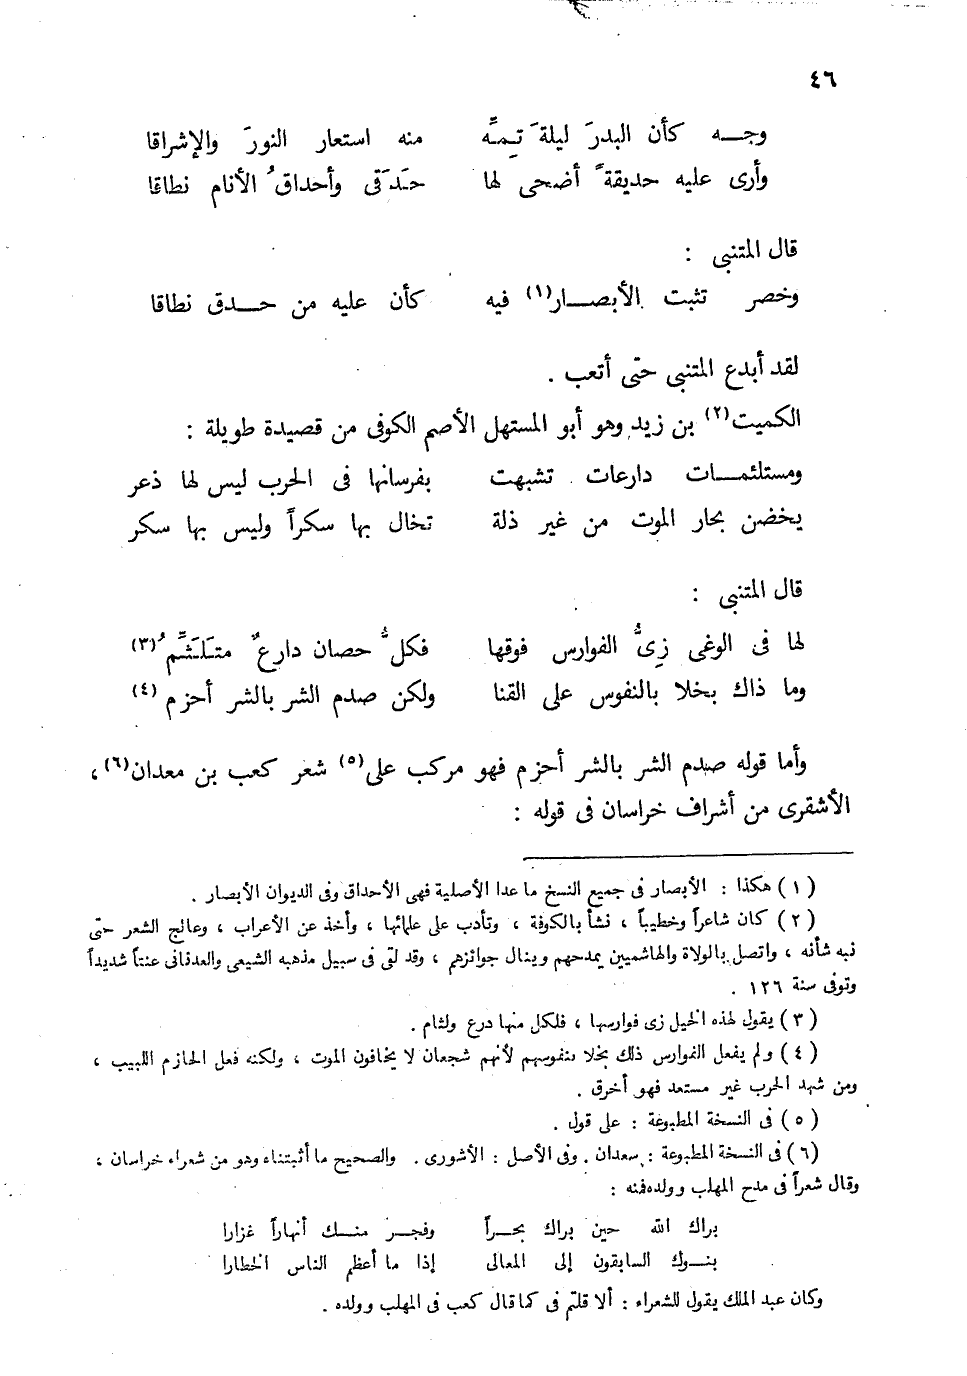 ٤٦
وجـــه كأن البدرَ ليلةَ تِمِّه منه استعار النورَ والإشراقا
وأرى عليه حديقةً أضحى لها حَدَقى وأحداقُ الأنام نطاقا
قال المتنبى :
وخصر تثبت الأبصـــار(١) فيه كأن عليه من حـــدق نطاقا
لقد أبدع المتنبى حتى أتعب .
الكميت(٢) بن زيد وهو أبو المستهل الأصم الكوفى من قصيدة طويلة :
ومستلئمـــات دارعات تشبهت بفرسانها فى الحرب ليس لها ذعر
يخضن بحار الموت من غير ذلة تخال بها سكراً وليس بها سكر
قال المتنبى :
لها فى الوغى زِىُّ الفوارس فوقها فكلُّ حصان دارعٌ متَلَثِّمُ(٣)
وما ذاك بخلا بالنفوس على القنا ولكن صدم الشر بالشر أحزم (٤)
وأما قوله صدم الشر بالشر أحزم فهو مركب على(٥) شعر كعب بن معدان(٦) ،
الأشقرى من أشراف خراسان فى قوله :
(١) هكذا : الأبصار فى جميع النسخ ما عدا الأصلية فهى الأحداق وفى الديوان الأبصار .
(٢) كان شاعراً وخطيباً ، نشأ بالكوفة ، وتأدب على علمائها ، وأخذ عن الأعراب ، وعالج الشعر حتى
نبه شأنه ، واتصل بالولاة والهاشميين يمدحهم وينال جوائزهم ، وقد لقى فى سبيل مذهبه الشيعى والعدنانى عنتاً شديداً
وتوفى سنة ١٢٦ .
(٣) يقول لهذه الخيل زى فوارسها ، فلكل منها درع ولثام .
(٤) ولم يفعل الفوارس ذلك بخلا بنفوسهم لأنهم شجعان لا يخافون الموت ، ولكنه فعل الحازم اللبيب ،
ومن شهد الحرب غير مستعد فهو أخرق .
(٥) فى النسخة المطبوعة : على قول .
(٦) فى النسخة المطبوعة : سعدان . وفى الأصل : الأشورى . والصحيح ما أثبتناه وهو من شعراء خراسان ،
وقال شعراً فى مدح المهلب وولده منه :
براك الله حين براك بحـــراً وفجـــر منـــك أنهاراً غزارا
بنـــوك السابقون إلى المعالى إذا ما أعظم الناس الخطارا
وكان عبد الملك يقول للشعراء : ألا قلتم فى كما قال كعب فى المهلب وولده .